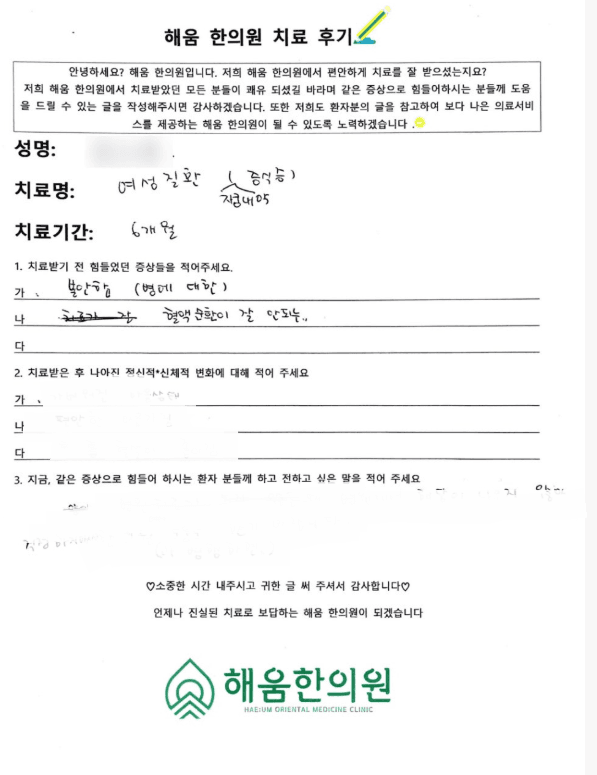 해움 한의원 치료 후기
안녕하세요? 해움 한의원입니다. 저희 해움 한의원에서 편안하게 치료를 잘 받으셨는지요?
저희 해움 한의원에서 치료받았던 모든 분들이 쾌유 되셨길 바라며 같은 증상으로 힘들어하시는 분들께 도움
을 드릴 수 있는 글을 작성해주시면 감사하겠습니다. 또한 저희도 환자분의 글을 참고하여 보다 나은 의료서비
스를 제공하는 해움 한의원이 될 수 있도록 노력하겠습니다.
성명:
치료명: 여성질환 (증식증)
자궁내막
치료기간: 6개월
1. 치료받기 전 힘들었던 증상들을 적어주세요.
가. 불안함 (병에 대한)
나 혈액순환이 잘 안되는..
다
2. 치료받은 후 나아진 정신적*신체적 변화에 대해 적어 주세요
가.
나
다
3. 지금, 같은 증상으로 힘들어 하시는 환자 분들께 하고 전하고 싶은 말을 적어 주세요
♡소중한 시간 내주시고 귀한 글 써 주셔서 감사합니다♡
언제나 진실된 치료로 보답하는 해움 한의원이 되겠습니다
해움한의원
HAEIUM ORIENTAL MEDICINE CLINIC